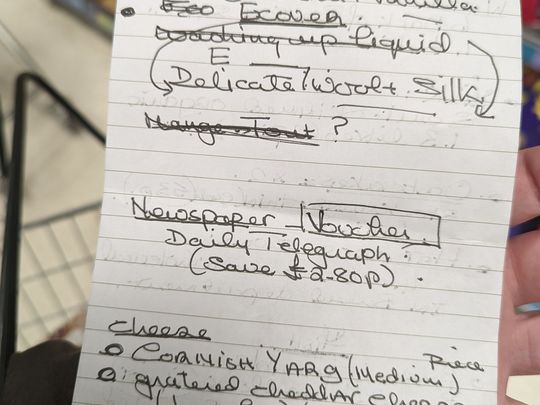 Vanilla
• Eco Ecover.
Washing up liquid
E
Delicate/Wool + Silk
Mange-Tout ?
Newspaper - Voucher.
Daily Telegraph.
(Save £2-80p) .
Cheese
• CORNISH YARG (Medium) Piece
• grated cheddar cheese